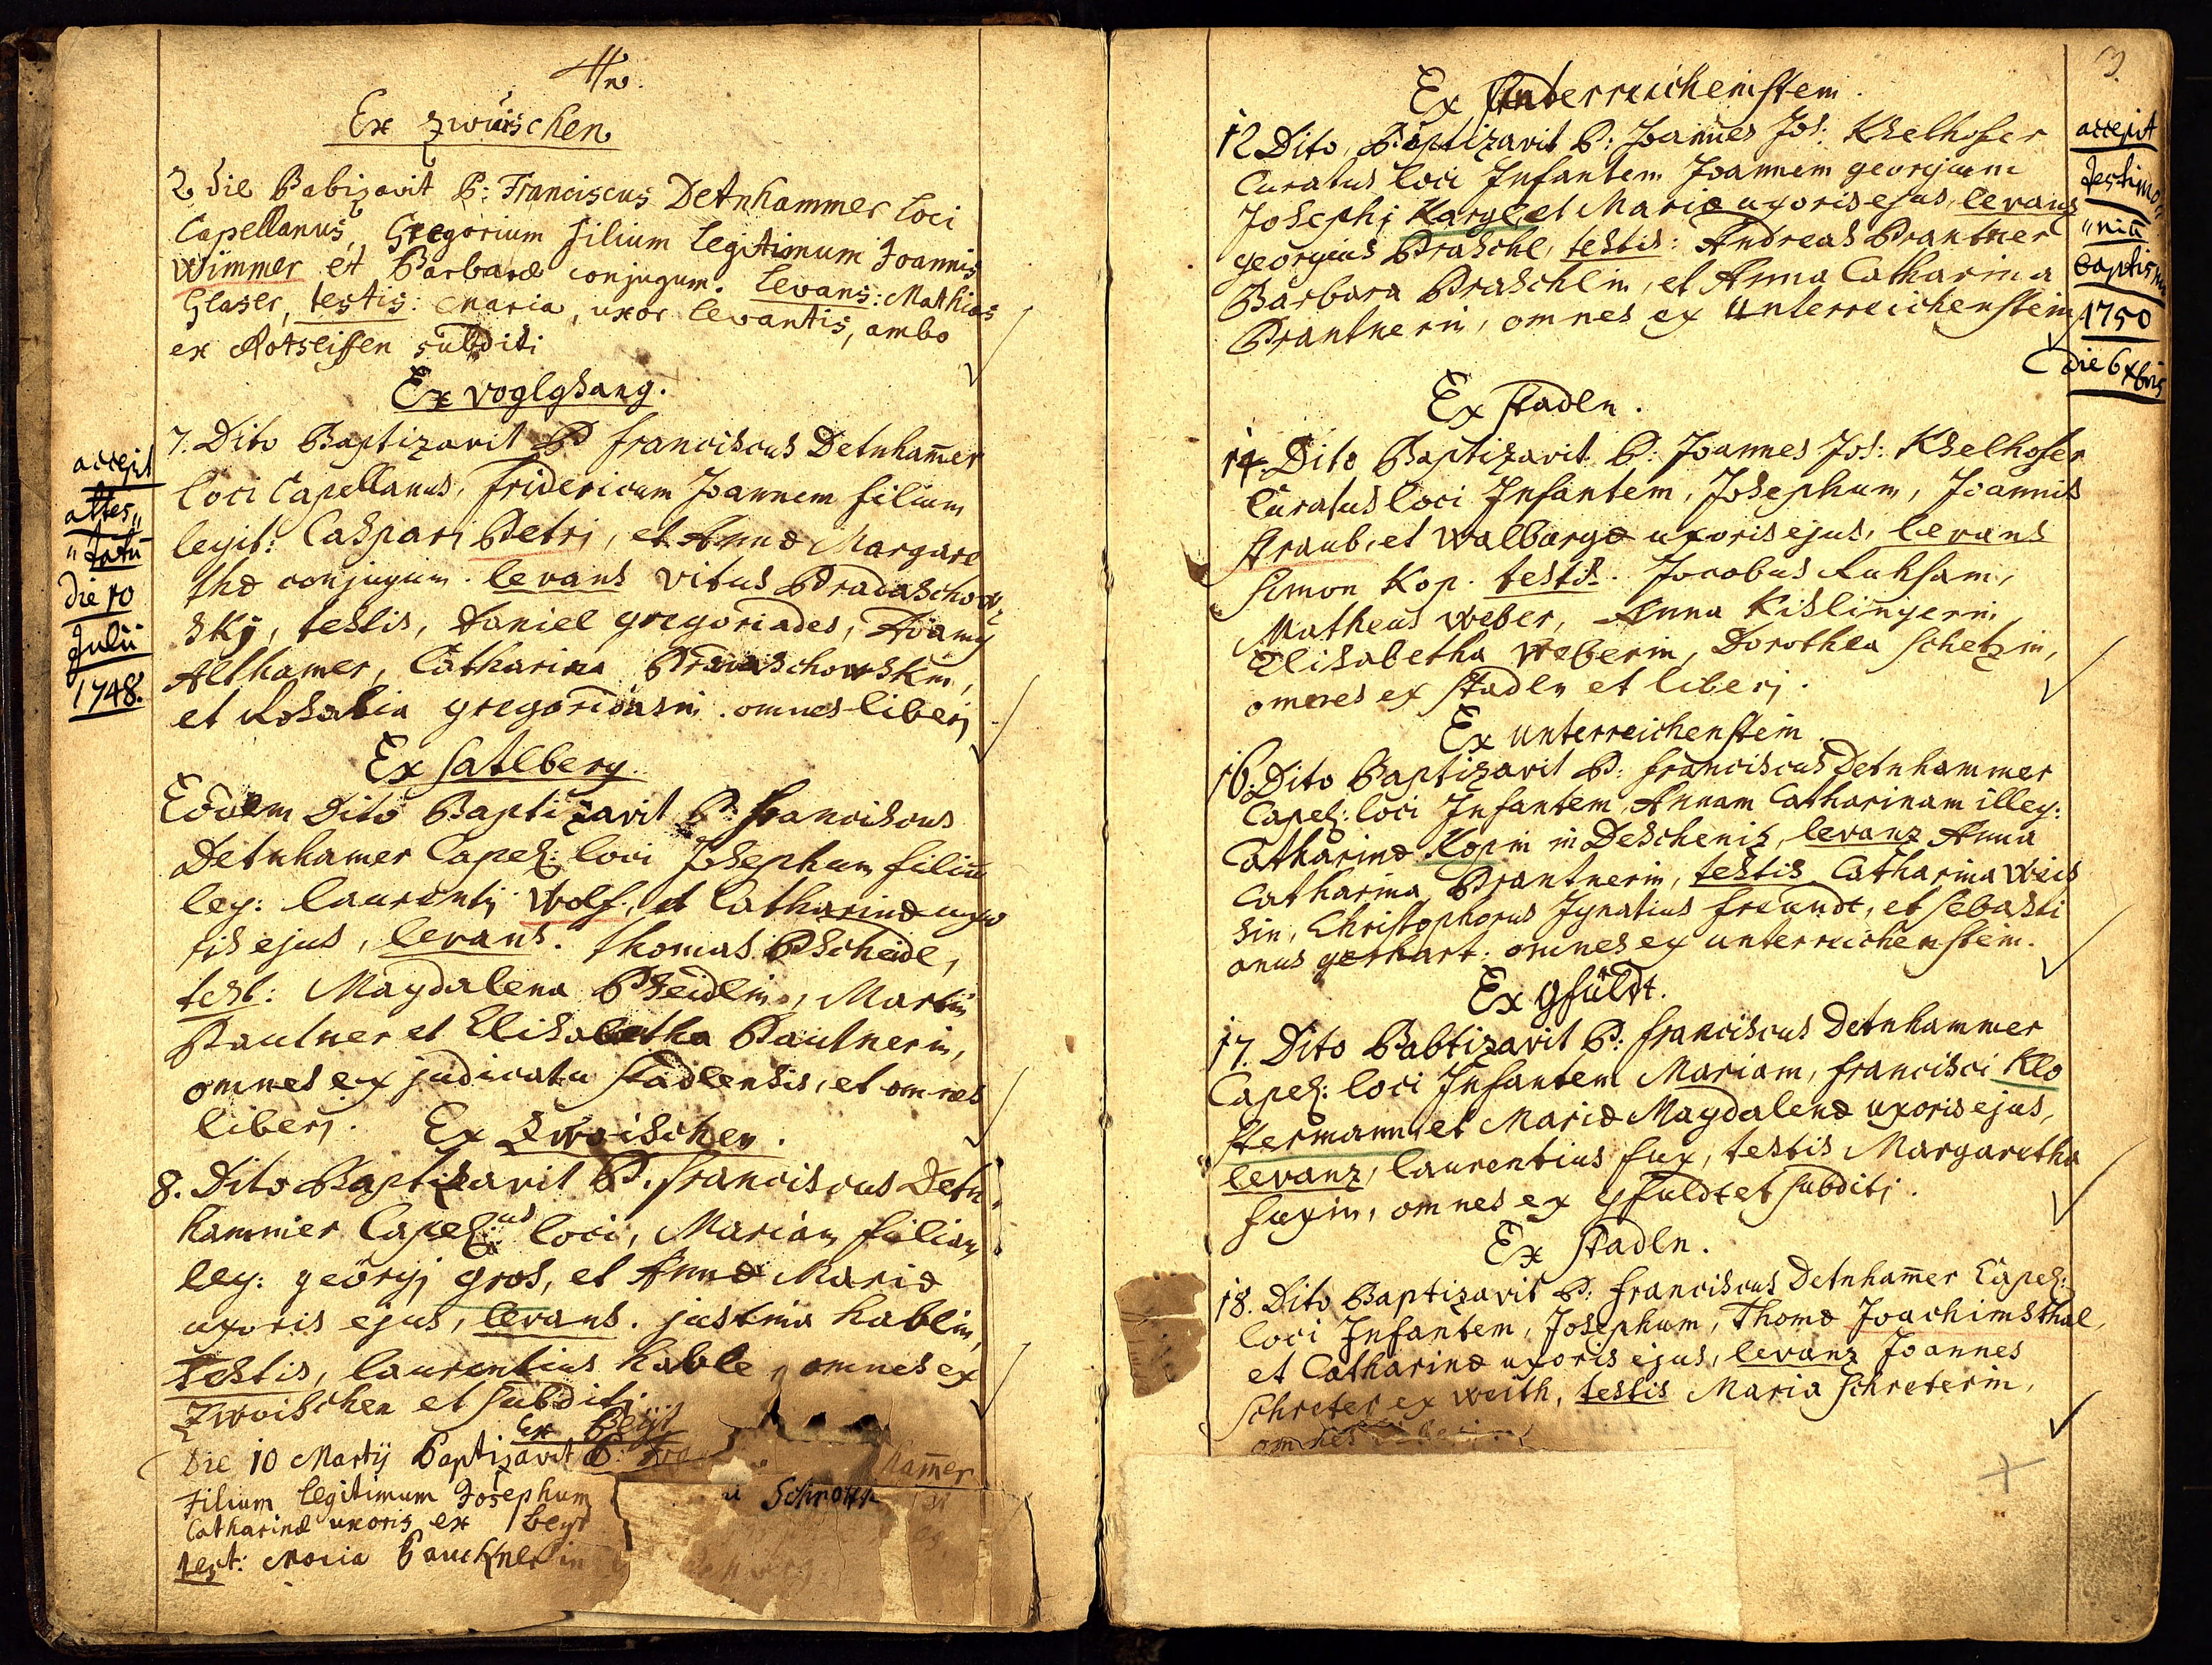 Ex Zwuischen
2 die Babizavit P: Franciscus Detnhammer Loci
Capellanus, Gregorium filium Legitimum Joannis
Wimmer et Barbaræ conjugum. Levans: Mathias
Glaser, testis: Maria, uxor levantis, ambo
ex Rotseiffen subditi
Ex Voglgsang.
7. Dito Baptizavit P franciscus Detnham̄er
loci Capellanus, fridericum Joannem filium
legit: Caspari Petri, et Annæ Margare
thæ conjugum. levans Vitus Pradaschow
skÿ, testis, Daniel gregoriades, Adamÿ
Althamer, Catharina Pradaschowskin,
et Rosalia gregoriadsin. omnes liberj
accepit
attes„
„tatū
die 10
Julii
1748.
Ex satlberg.
Eodem Dito Baptizavit P: franciscus
Detnhamer Capel: loci Josephum filiū
leg: laurentij Wolf, et Catharinæ uxo
ris ejus, levans. thomas Pscheidl,
test: Magdalena Pseidlin, Martin
Pautner et Elisabetha Pautnerin,
omnes ex judicatu stadlensis, et omnes
liberj.
Ex Zwoischen.
8. Dito Baptizavit P. franciscus Detn
hammer Capel:us loci, Mariam filiam
leg: geörgj gros, et Annæ Mariæ
uxoris ejus, levans. justina hablin,
testis, laurentius hable, omnes ex
Zwoischen et subditj
Ex Beÿt
Die 10 Martij Baptizavit P: Fra ham̄er
Filium legitimum Josephum Schrott
Catharinæ uxoris ex
test: Maria Pauckhnerin
3.
Ex Unterreichenstein.
12 Dito, Baptizavit P: Joannes Jos: Kselhofer
Curatus loci Infantem Joannem georgium
Josephj Kargl, et Mariæ uxoris ejus, levans
georgius Praschl, testis: Andreas Prantner
Barbara Praschlin, et Anna Catharina
Prantnerin, omnes ex Unterreichenstein
accepit
testimo„
„niū
baptism
1750
die 6 Xbris
Ex stadln.
14. Dito Baptizavit P: Joannes Jos: Kselhofer
Curatus loci Infantem, Josephum, Joannis
straub, et Walburgæ uxoris ejus, levans
Simon Kop. testis. Jacobus Ruksam,
Matheus Weber, Anna Kislingerin,
Elisabetha Weberin, Dorothea schetzin,
omnes ex stadln et liberj.
Ex Unterreichenstein.
16. Dito Baptizavit P: franciscus Detnhammer
Capel: loci Infantem Annam Catharinam illeg:
Catharinæ Kopin in Deschenitz, levanz Anna
Catharina Prantnerin, testis Catharina Weis
sin, Christophorus Ignatius freundt, et sebasti
anus gerhart. omnes ex unterreichenstein.
Ex gfüldt.
17. Dito Babtizavit P: franciscus Detnhammer
Capel: loci Infantem Mariam, francisci Klo
stermann, et Mariæ Magdalenæ uxoris ejus,
levanz, laurentius fux, testis Margaretha
fuxin, omnes ex gfuldt et subditj.
Ex stadln.
18. Dito Baptizavit P: franciscus Detnham̄er Capel:
loci Infantem, Josephum, Thomæ Joachimsthal,
et Catharinæ uxoris ejus, levanz Joannes
schreter ex weith, testis Maria schreterin,
omnes